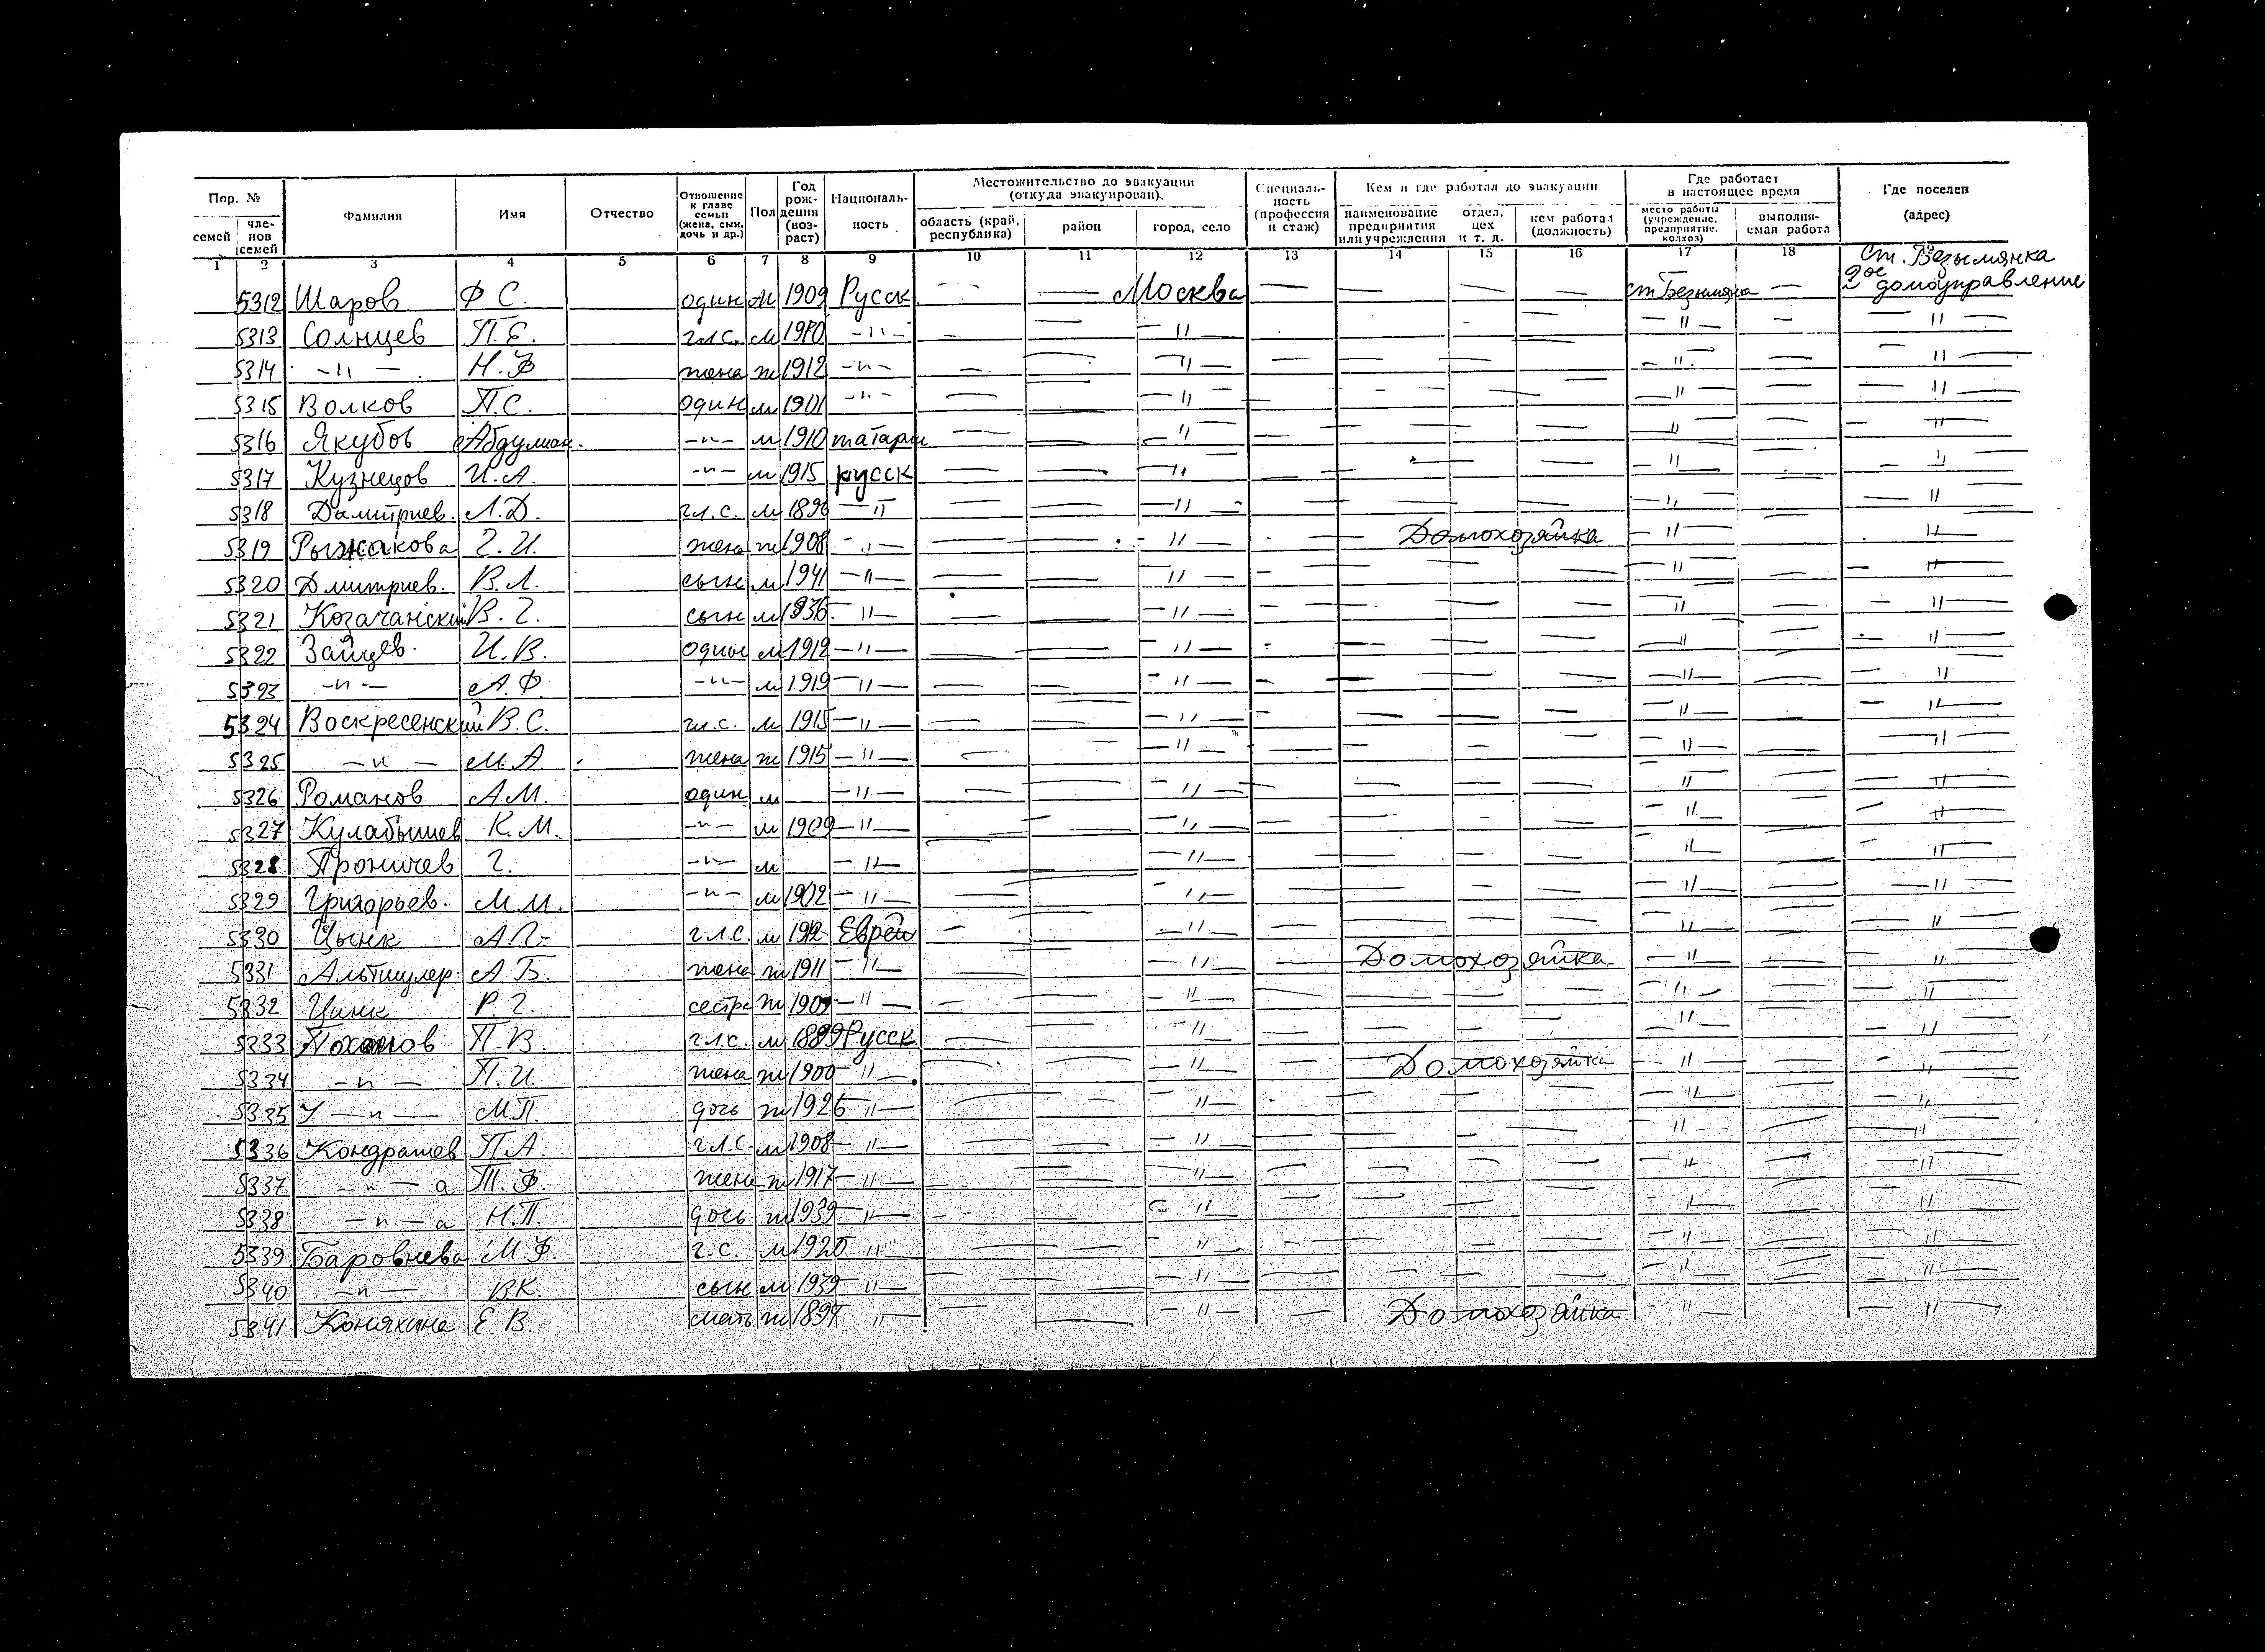 Пор. № Фамилия Имя Отчество Отношение к главе семьи (жена, сын, дочь и др.) Пол Год рождения (возраст) Националь-ность Местожительство до эвакуации (откуда эвакуирован) Специаль-ность (профессия и стаж) Кем и где работал до эвакуации Где работает в настоящее время Где поселен (адрес)
семей чле-нов семей область (край, республика) район город, село наименование предприятия или учреждения отдел, цех и т. д. кем работал (должность) место работы (учреждение, предприятие, колхоз) выполня-емая работа
1 2 3 4 5 6 7 8 9 10 11 12 13 14 15 16 17 18 19
5312 Шаров Ф С. один м 1909 Русск — — Москва — — — — ст Безымянка — ст. Безымянка 2ое домоуправление
5313 Солнцев П.Е. гл.с. м -"- — — -"- — — — -"- — -"-
5314 -"- Н.Ф жена ж 1912 -"- — — -"- — — — — -"- — -"-
5315 Волков П.С. один м 1901 -"- — — -"- — — — — -"- — -"-
5316 Якубов Абдулман. -"- м 1910 татарин — — -"- — — — — -"- — -"-
5317 Кузнецов И.А. -"- м 1915 русск — — -"- — — — — -"- — -"-
5318 Дмитриев. Л.Д. гл.с. м 1896 -"- — — -"- — — — — -"- — -"-
5319 Рыжакова Г.И. жена ж 1908 -"- — — -"- — Домохозяйка -"- — -"-
5320 Дмитриев. В.Л. сын м 1941 -"- — — -"- — — — — -"- — -"-
5321 Козачанский В.Г. сын м 1936 -"- — — -"- — — — — -"- — -"-
5322 Зайцев. И.В. один м 1912 -"- — — -"- — — — — -"- — -"-
5323 -"- А.Ф. -"- м 1919 -"- — — -"- — — — — -"- — -"-
5324 Воскресенский В.С. гл.с. м 1915 -"- — — -"- — — — — -"- — -"-
5325 -"- М.А жена ж 1915 -"- — — -"- — — — — -"- — -"-
5326 Романов А.М. один м -"- — — -"- — — — — -"- — -"-
5327 Кулабышев К.М. -"- м 1909 -"- — — -"- — — — — -"- — -"-
5328 Проничев Г. -"- м -"- — — -"- — — — — -"- — -"-
5329 Григорьев. М.М. -"- м 1902 -"- — — -"- — — — — -"- — -"-
5330 Цынк А.Г. гл.с. м Еврей — — -"- — — — — -"- — -"-
5331 Альтшулер. А Б. жена ж 1911 -"- — — -"- — Домохозяйка -"- — -"-
5332 Цинк Р.Г. сестра ж 1909 -"- — — -"- — — — — -"- — -"-
5333 П.В. гл.с. м 1889 Русск — — -"- — — — — -"- — -"-
5334 -"- П.И. жена ж 1900 -"- — — -"- — Домохозяйка -"- — -"-
5335 -"- М.П. дочь ж 1926 -"- — — -"- — — — — -"- — -"-
5336 Кондрашев П.А. гл.с. м 1908 -"- — — -"- — — — — -"- — -"-
5337 -"- а Т.Ф. жена ж 1917 -"- — — -"- — — — — -"- — -"-
5338 -"- а Н.П. дочь ж 1939 -"- — — -"- — — — — -"- — -"-
5339 Баровнева М.Ф. г.с. м 1920 -"- — — -"- — — — — -"- — -"-
5340 -"- В.К. сын м 1939 -"- — — -"- — — — — -"- — -"-
5341 Конякина Е.В. мать ж 1897 -"- — — -"- — Домохозяйка -"- — -"-